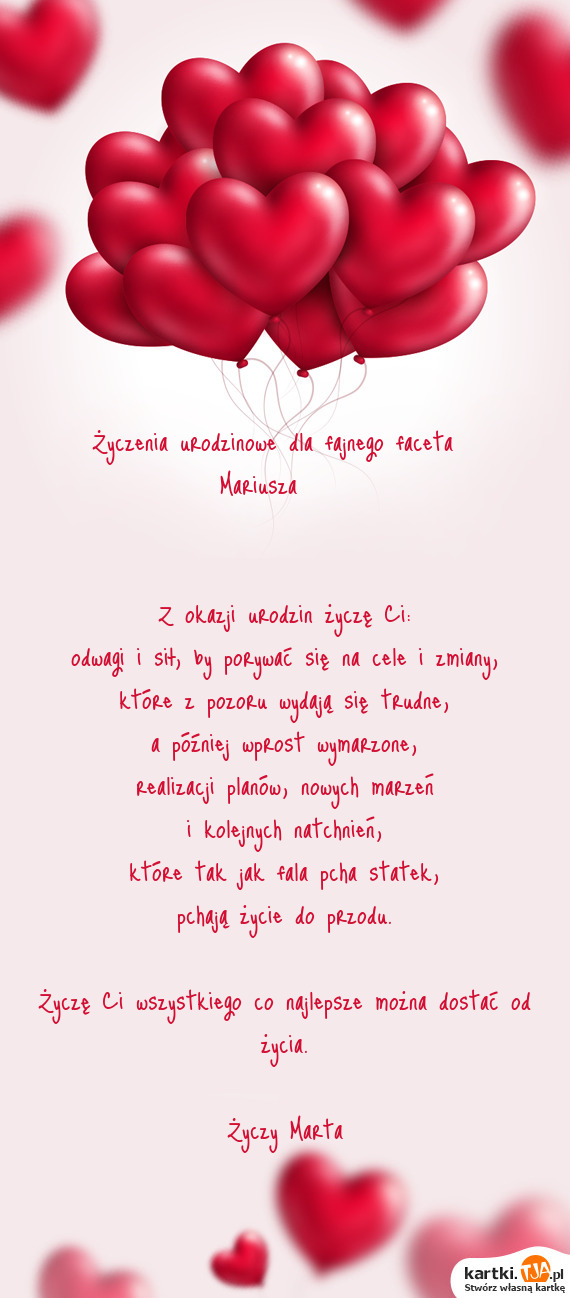 Życzenia urodzinowe dla fajnego faceta
Mariusza
Z okazji urodzin życzę Ci:
odwagi i sił, by porywać się na cele i zmiany,
które z pozoru wydają się trudne,
a później wprost wymarzone,
realizacji planów, nowych marzeń
i kolejnych natchnień,
które tak jak fala pcha statek,
pchają życie do przodu.
Życzę Ci wszystkiego co najlepsze można dostać od
życia.
Życzy Marta
kartki.TJA.pl
Stwórz własną kartkę